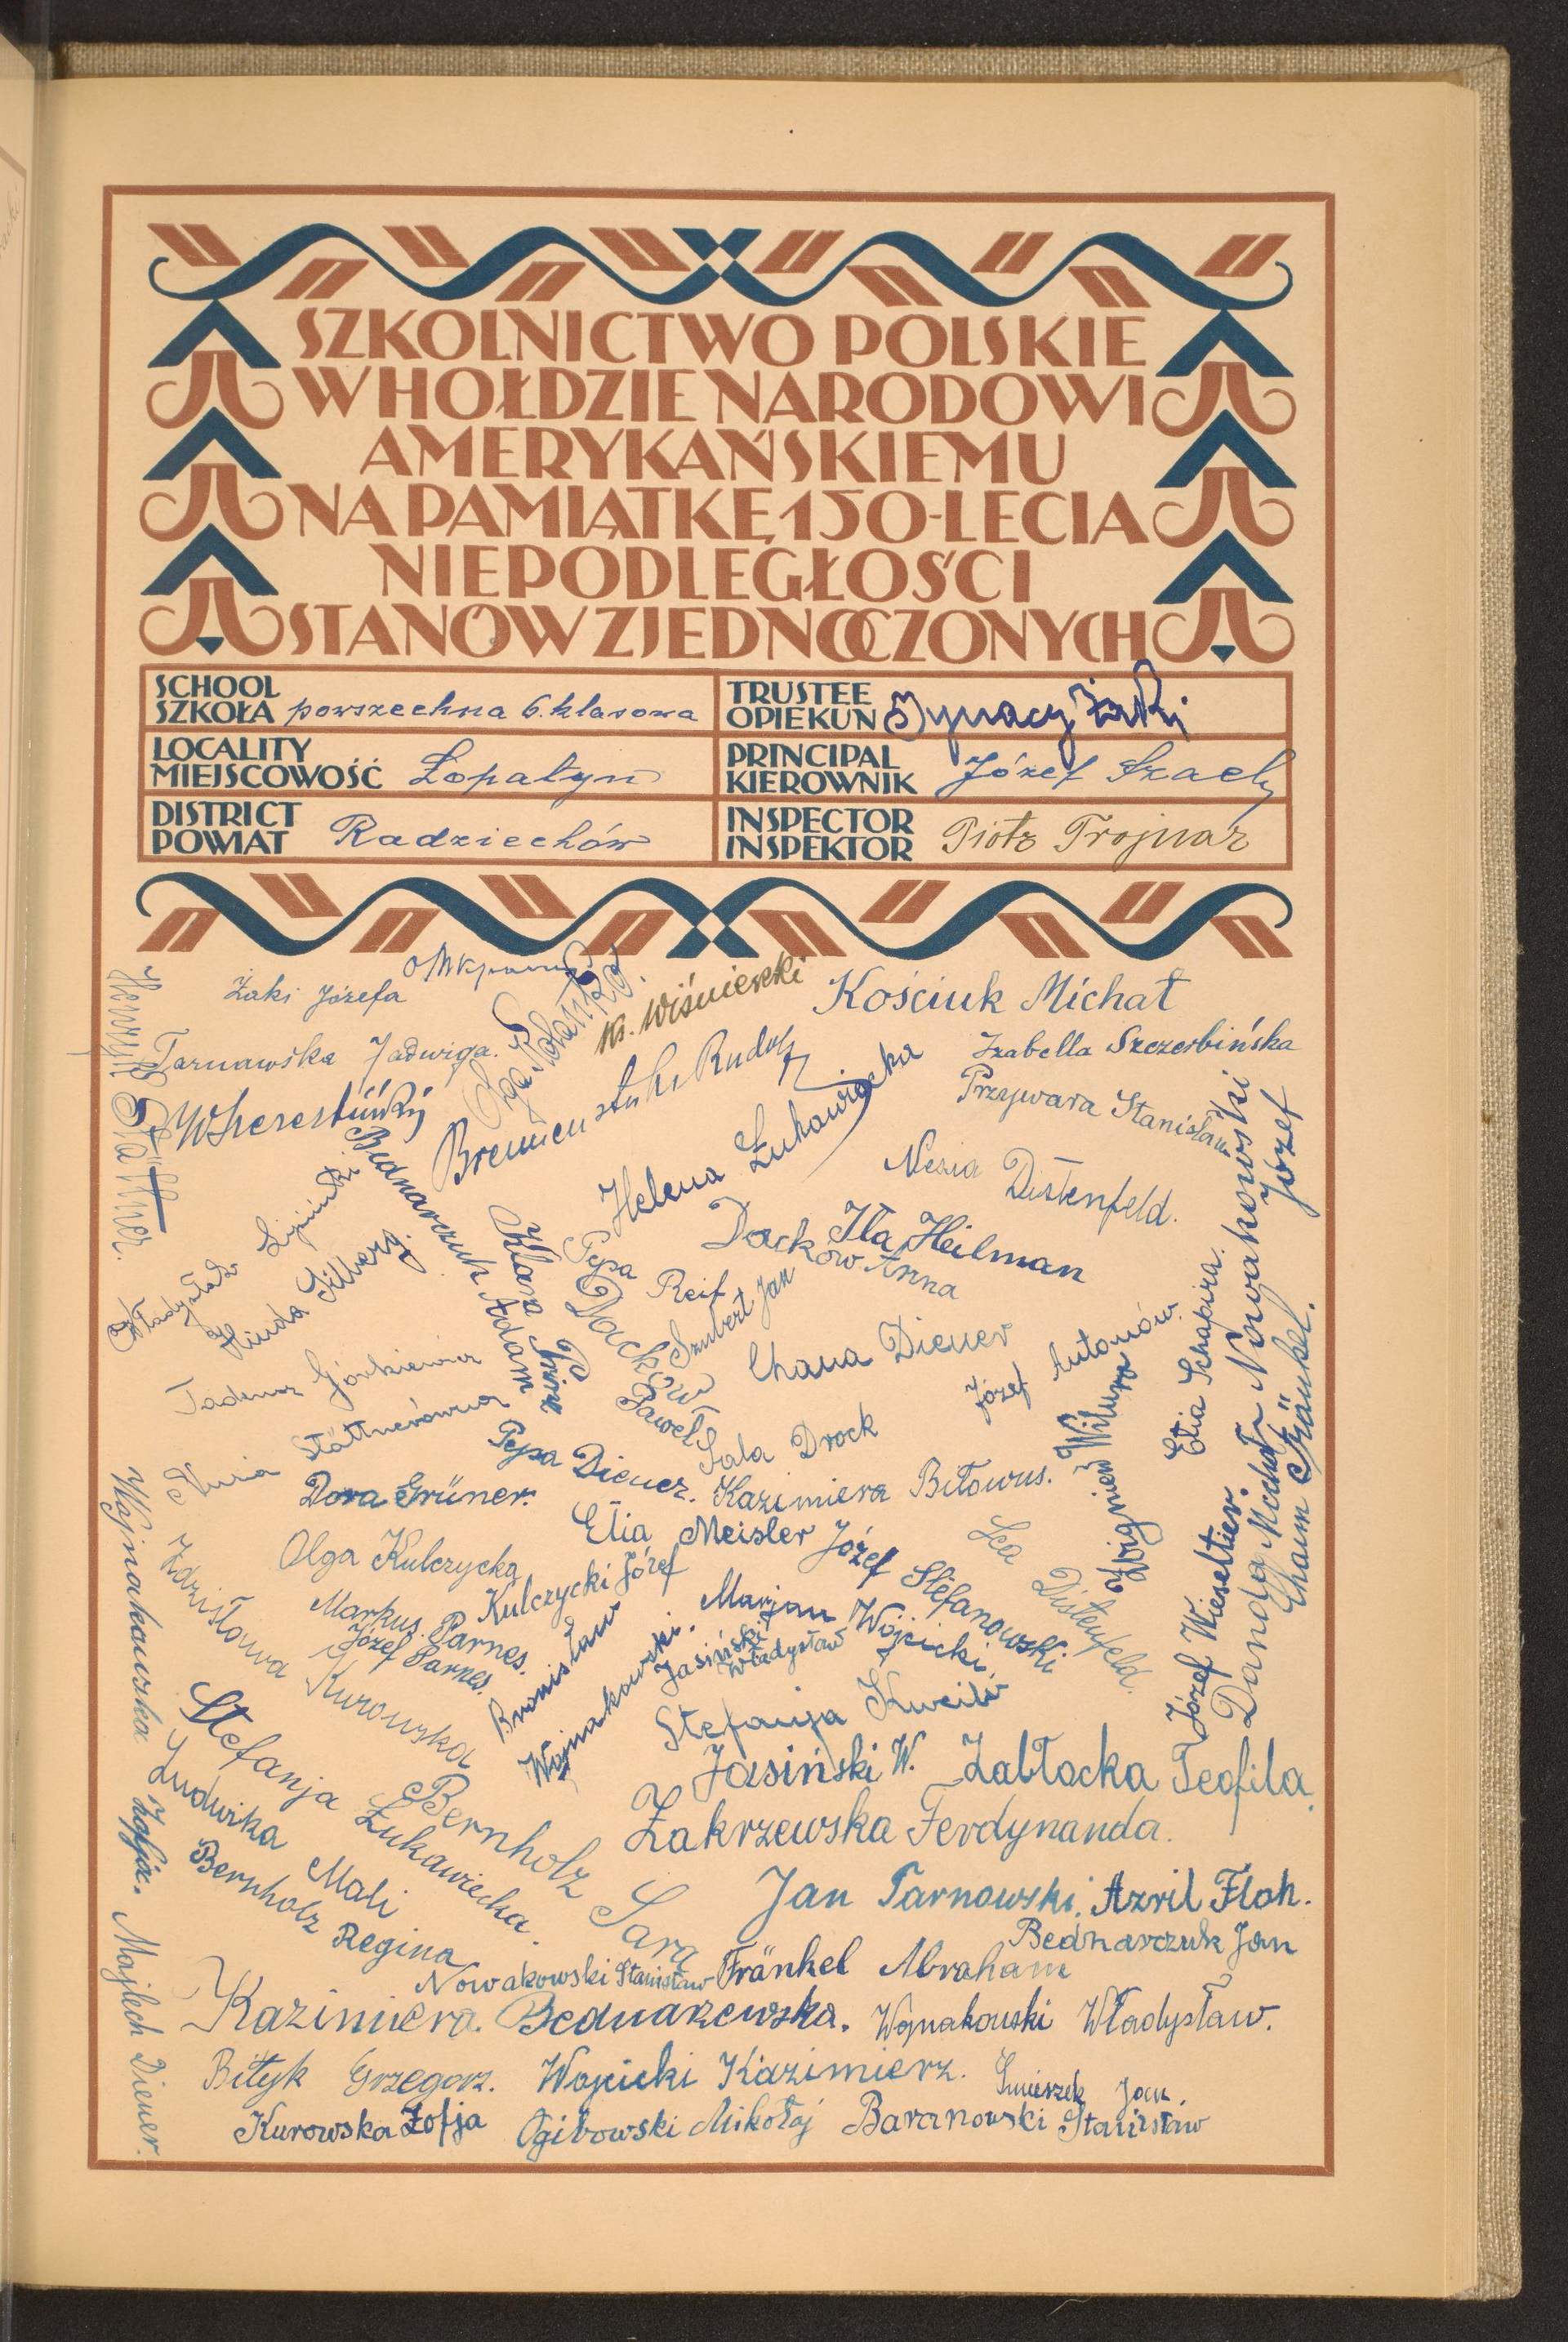 SZKOLNICTWO POLSKIE
W HOŁDZIE NARODOWI
AMERYKAŃSKIEMU
NA PAMIĄTKĘ 150-LECIA
NIEPODLEGŁOŚCI
STANÓW ZJEDNOCZONYCH
SCHOOL
SZKOŁA powszechna 6. klasowa
TRUSTEE
OPIEKUN Ignacy Żaki
LOCALITY
MIEJSCOWOŚĆ Łopatyn
PRINCIPAL
KIEROWNIK Józef Szach
DISTRICT
POWIAT Radziechów
INSPECTOR
INSPEKTOR Piotr Trojnar
Żaki Józefa
K. Wiśnierski
Kościuk Michał
Henryk Stättner.
Tarnawska Jadwiga.
Izabella Szczerbińska
Rudolf
Przywara Stanisław
Helena Żukowiecka
Nesia Distenfeld.
Bednarczuk Adam
Władysław
Hinda Silberg.
Klara
Pepa Reif
Ita Heilman
Daćków Anna
Szubert Jan
Daćków Paweł
Chana Diener
Józef Antonów.
Etia Schapira.
Nowakowski Józef
Tadeusz Górkiewicz
Stättnerówna
Sala Drock
Pepa Diener.
Dora Grüner.
Kazimiera Bitowus.
Zbigniew Wilura
Etia Meisler
Józef Stefanowski
Lea Distenfeld.
Józef Wieseltier.
Danoga Michał
Chaim Fränkel.
Olga Kulczycka
Kulczycki Józef
Markus Parnes.
Józef Parnes.
Zdzisława Kurowska
Bronisław Wojnakowski.
Marjan Wójcicki.
Jasiński Władysław
Stefanja
Wojnakowska Zofja.
Jasiński W.
Zabłocka Teofila.
Stefanja Żukawiecka.
Bernholz Sara
Zakrzewska Ferdynanda.
Ludwika Mali
Bernholz Regina
Jan Tarnowski.
Azril Floh.
Bednarczuk Jan
Nowakowski Stanisław
Fränkel Abraham
Majlech Diener.
Kazimiera Bednarzewska.
Wojnakowski Władysław.
Bityk Grzegorz.
Wojcicki Kazimierz.
Śmieszek Jan.
Kurowska Zofja
Ogibowski Mikołaj
Baranowski Stanisław